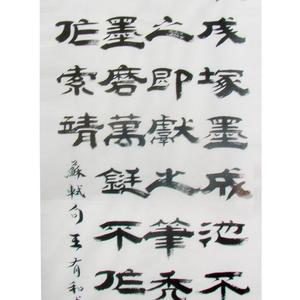 成塚墨成池不
之即獻之筆禿
墨磨萬鋌不作
作索靖
蘇軾句王有和